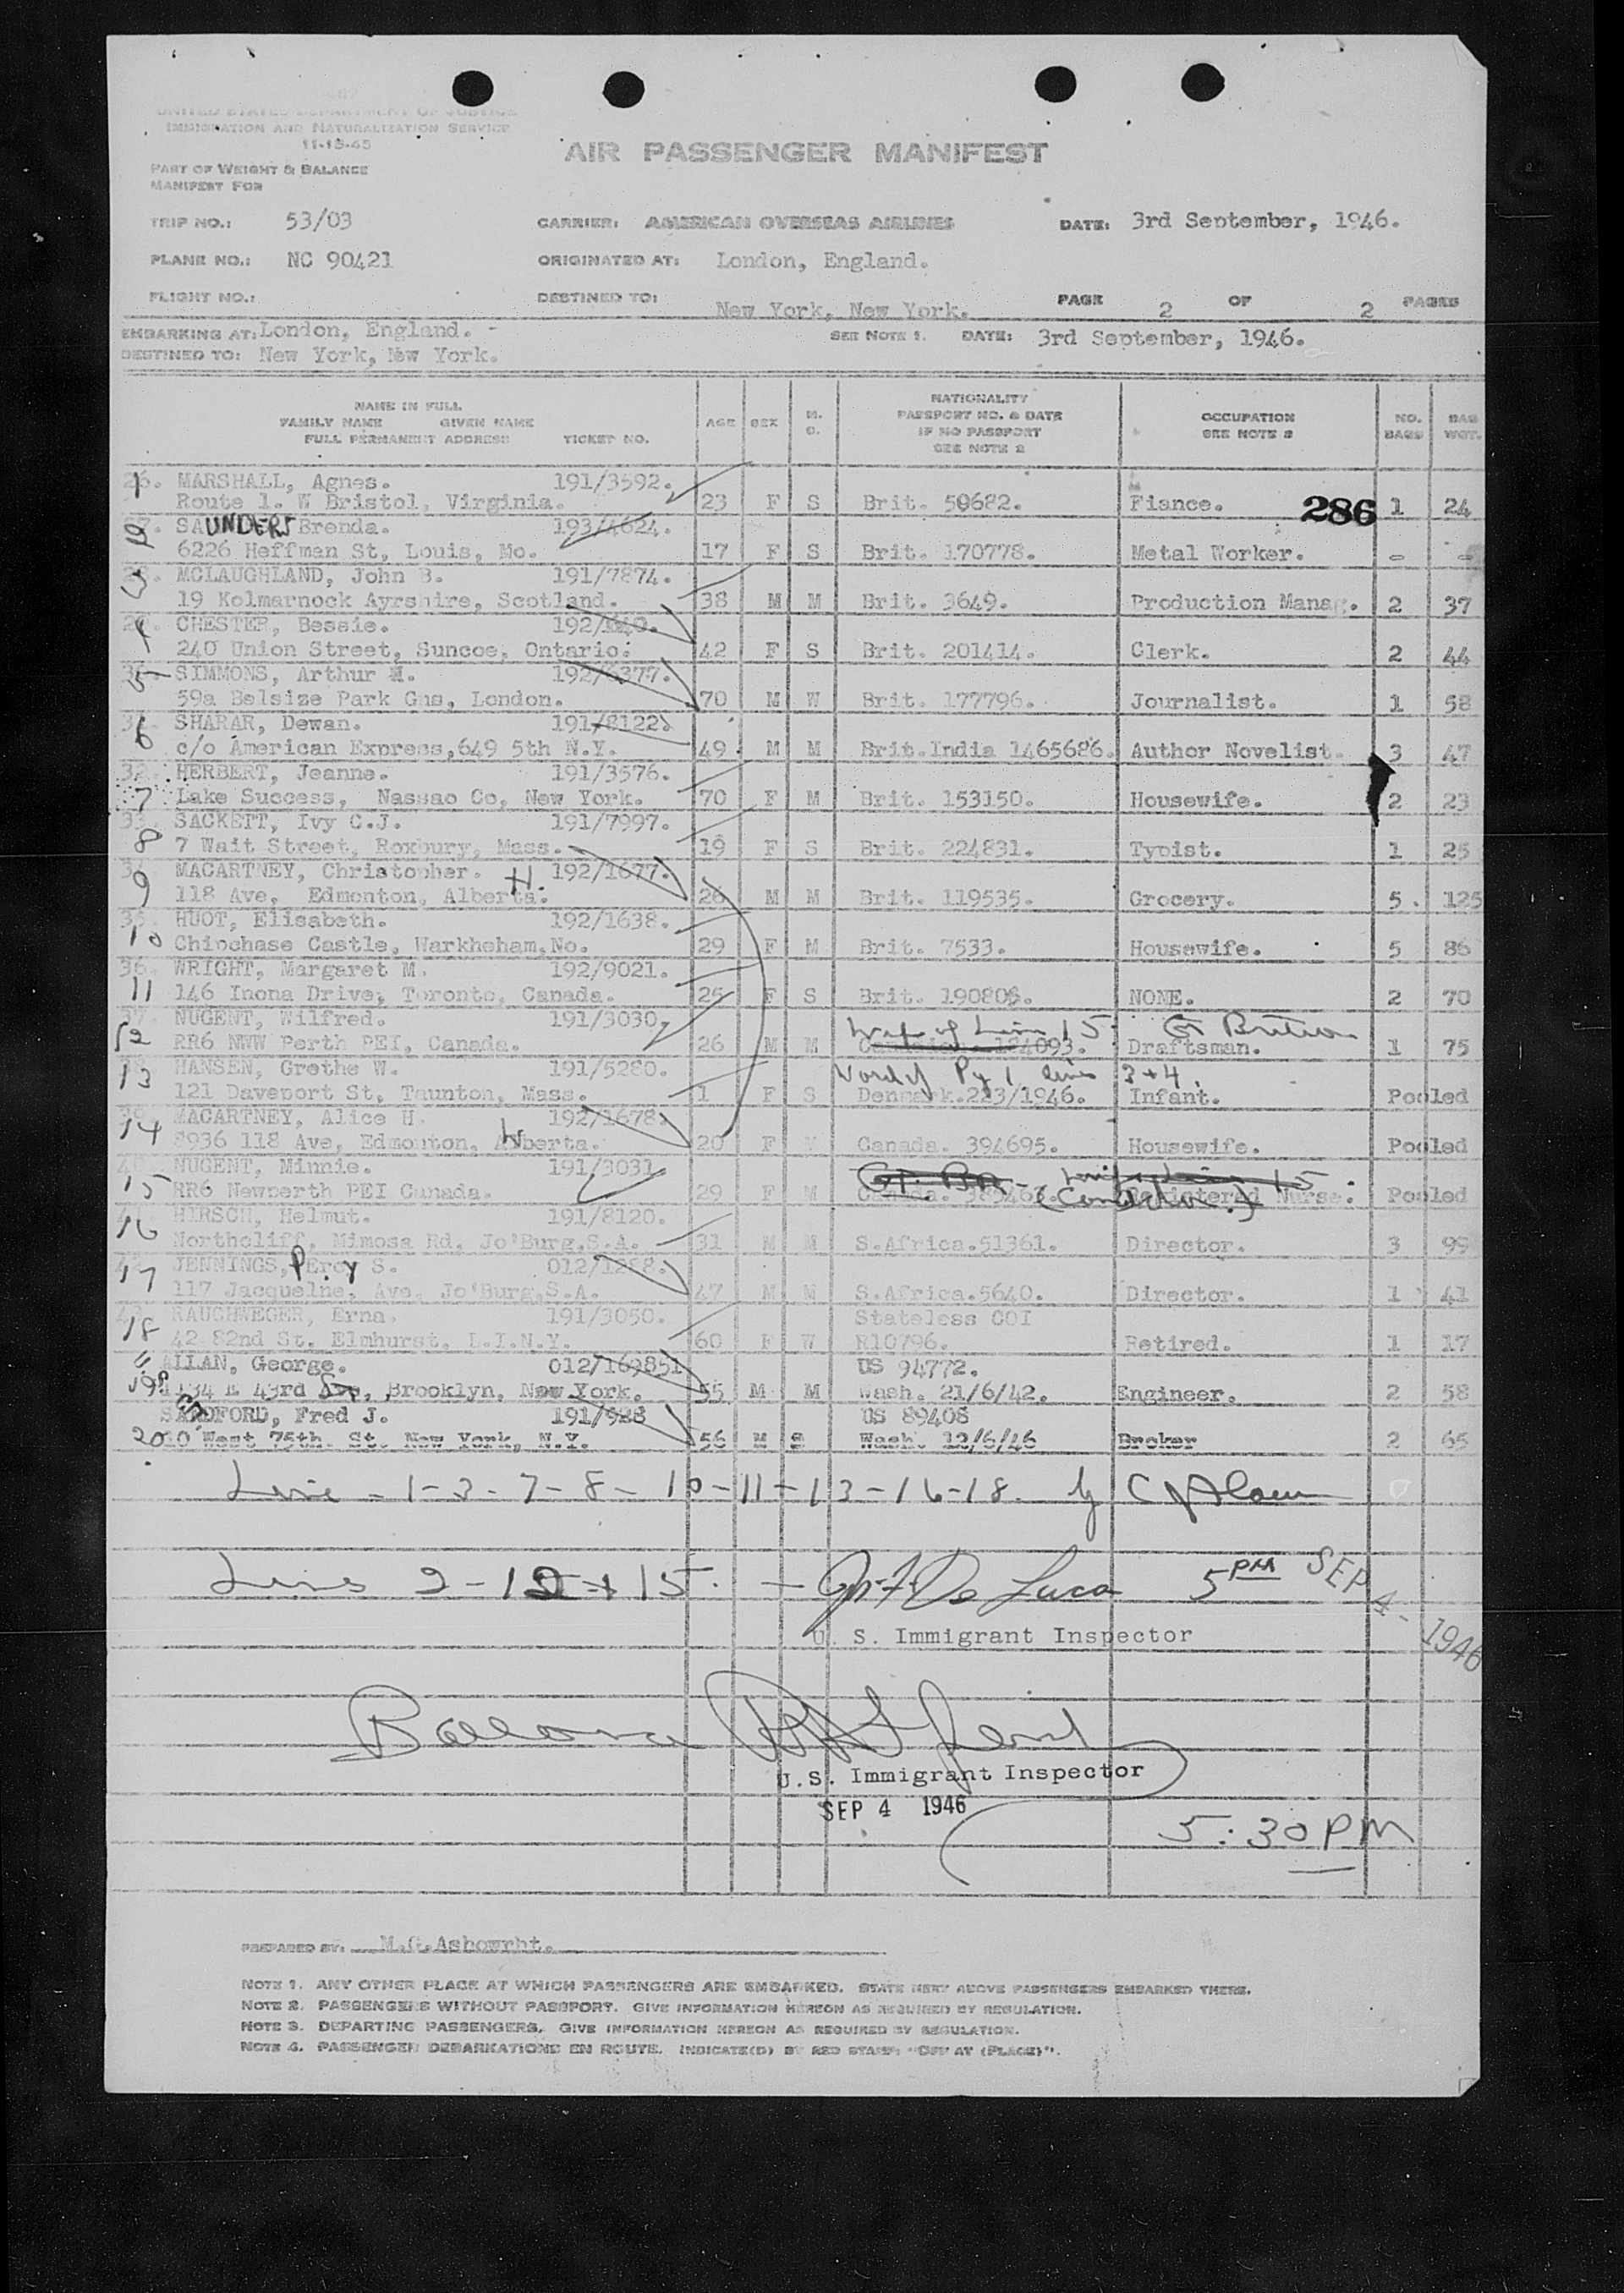 UNITED STATES DEPARTMENT OF JUSTICE
IMMIGRATION AND NATURALIZATION SERVICE
11-15-45
AIR PASSENGER MANIFEST
PART OF WEIGHT & BALANCE
MANIFEST FOR
TRIP NO.: 53/03 CARRIER: AMERICAN OVERSEAS AIRLINES DATE: 3rd September, 1946.
PLANE NO.: NC 90421 ORIGINATED AT: London, England.
FLIGHT NO.: DESTINED TO: New York, New York. PAGE 2 OF 2 PAGES
EMBARKING AT: London, England. - SEE NOTE 1. DATE: 3rd September, 1946.
DESTINED TO: New York, New York.
NAME IN FULL
FAMILY NAME GIVEN NAME
FULL PERMANENT ADDRESS TICKET NO. AGE SEX M. S. NATIONALITY PASSPORT NO. & DATE IF NO PASSPORT SEE NOTE 2 OCCUPATION SEE NOTE 3 NO. BAGS BAG WGT.
26. MARSHALL, Agnes. 191/3592.
1 Route 1. W Bristol, Virginia. 23 F S Brit. 50682. Fiance. 286 1 24
SAUNDERS Brenda. 193/4624.
2 6226 Hoffman St, Louis, Mo. 17 F S Brit. 170778. Metal Worker. - -
MCLAUGHLAND, John B. 191/7874.
3 19 Kolmarnock Ayrshire, Scotland. 38 M M Brit. 3649. Production Manag. 2 37
CHESTER, Bessie. 192/
4 240 Union Street, Suncoe, Ontario. 42 F S Brit. 201414. Clerk. 2 44
SIMMONS, Arthur M. 192/6377.
5 59a Belsize Park Gns, London. 70 M W Brit. 177796. Journalist. 1 58
SHARAR, Dewan. 191/8122.
6 c/o American Express,649 5th N.Y. 49 M M Brit.India 1465686. Author Novelist. 3 47
32. HERBERT, Jeanne. 191/3576.
7 Lake Success, Nassao Co, New York. 70 F M Brit. 153150. Housewife. 2 23
33. SACKETT, Ivy C.J. 191/7997.
8 7 Wait Street, Roxbury, Mass. 19 F S Brit. 224831. Typist. 1 25
MACARTNEY, Christopher. H. 192/1677.
9 118 Ave, Edmonton, Alberta. 26 M M Brit. 119535. Grocery. 5. 125
35. HUOT, Elisabeth. 192/1638.
10 Chipchase Castle, Warkheham,No. 29 F M Brit. 7533. Housewife. 5 86
36. WRIGHT, Margaret M. 192/9021.
11 146 Inona Drive, Toronto, Canada. 25 F S Brit. 190806. NONE. 2 70
37. NUGENT, Wilfred. 191/3030. of Line 15 Gt Britain
12 RR6 NWW Perth PEI, Canada. 26 M M 184093. Draftsman. 1 75
HANSEN, Grethe W. 191/5280. Pg 1 lines 3+4.
13 121 Davenport St, Taunton, Mass. 1 F S Denmark.223/1946. Infant. Pooled
39. MACARTNEY, Alice H. 192/1678.
14 8936 118 Ave, Edmonton, Alberta. 20 F M Canada. 394695. Housewife. Pooled
NUGENT, Minnie. 191/3031 Gt. Br -
15 RR6 Newperth PEI Canada. 29 F M Canada. (Canadian.) Registered Nurse. Pooled
HIRSCH, Helmut. 191/8120.
16 Northcliff, Mimosa Rd. Jo'Burg.S.A. 31 M M S.Africa.51361. Director. 3 99
JENNINGS, Percy S. 012/1288.
17 117 Jacquelne, Ave, Jo'Burg,S.A. 47 M M S.Africa.5640. Director. 1 41
RAUCHWEGER, Erna. 191/3050. Stateless COI
18 42-82nd St. Elmhurst, L.I.N.Y. 60 F W R10796. Retired. 1 17
ALLAN, George. 012/169851 US 94772.
19 E 43rd Brooklyn, New York. 55 M M Wash. 21/6/42. Engineer. 2 58
SANDFORD, Fred J. 191/928 US 89408
20 West 75th. St. New York, N.Y. 56 M S Wash. 12/6/46 Broker 2 65
Line - 1-3-7-8-10-11-13-16-18. by
Lines 2-12+15. - De Luca 5 PM SEP 4- 1946
U. S. Immigrant Inspector
Balance
U.S. Immigrant Inspector
SEP 4 1946
5:30 PM
PREPARED BY: M.C.Ashowrht.
NOTE 1. ANY OTHER PLACE AT WHICH PASSENGERS ARE EMBARKED. STATE HERE ABOVE PASSENGERS EMBARKED THERE.
NOTE 2. PASSENGERS WITHOUT PASSPORT. GIVE INFORMATION HEREON AS REQUIRED BY REGULATION.
NOTE 3. DEPARTING PASSENGERS. GIVE INFORMATION HEREON AS REQUIRED BY REGULATION.
NOTE 4. PASSENGER DEBARKATIONS EN ROUTE. INDICATE(D) BY RED STAMP "OFF AT (PLACE)".